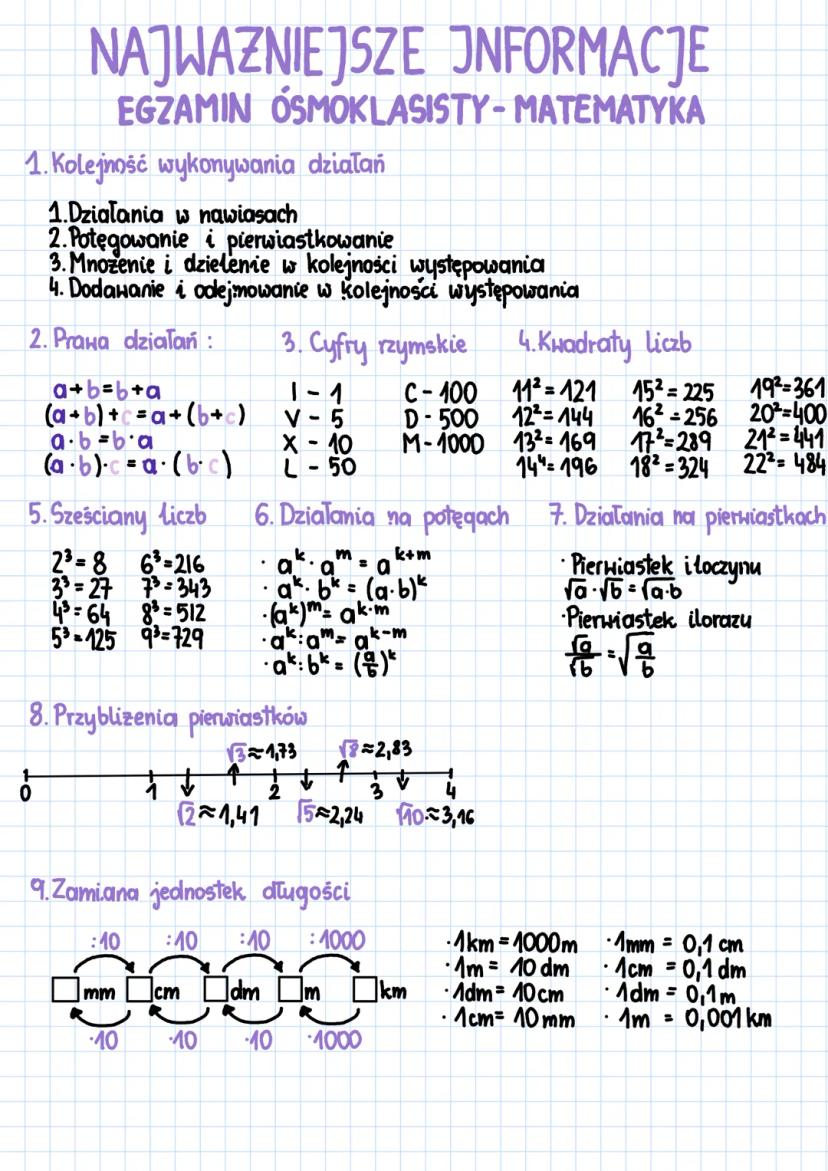 NAJWAŻNIEJSZE INFORMACJE
EGZAMIN ÓSMOKLASISTY - MATEMATYKA
1. Kolejność wykonywania działań
1. Działania w nawiasach
2. Potęgowanie i pierwiastkowanie
3. Mnożenie i dzielenie w kolejności występowania
4. Dodawanie i odejmowanie w kolejności występowania
2. Prawa działań :
a+b=b+a
(a+b)+c=a+(b+c)
a·b=b·a
(a·b)·c=a·(b·c)
3. Cyfry rzymskie
I - 1 C - 100
V - 5 D - 500
X - 10 M - 1000
L - 50
4. Kwadraty liczb
11²=121 15²=225 19²=361
12²=144 16²=256 20²=400
13²=169 17²=289 21²=441
14⁴=196 18²=324 22²=484
5. Sześciany liczb
2³=8 6³=216
3³=27 7³=343
4³=64 8³=512
5³=125 9³=729
6. Działania na potęgach
· aᵏ·aᵐ = aᵏ⁺ᵐ
· aᵏ·bᵏ = (a·b)ᵏ
· (aᵏ)ᵐ = aᵏ·ᵐ
· aᵏ:aᵐ = aᵏ⁻ᵐ
· aᵏ:bᵏ = (a/b)ᵏ
7. Działania na pierwiastkach
· Pierwiastek iloczynu
√a·√b=√a·b
· Pierwiastek ilorazu
√a/√b=√a/b
8. Przybliżenia pierwiastków
√3≈1,73 √8≈2,83
0 1 2 3 4
√2≈1,41 √5≈2,24 √10≈3,16
9. Zamiana jednostek długości
:10 :10 :10 :1000
mm cm dm m km
·10 ·10 ·10 ·1000
· 1km = 1000m · 1mm = 0,1 cm
· 1m = 10 dm · 1cm = 0,1 dm
· 1dm = 10cm · 1dm = 0,1m
· 1cm = 10mm · 1m = 0,001 km